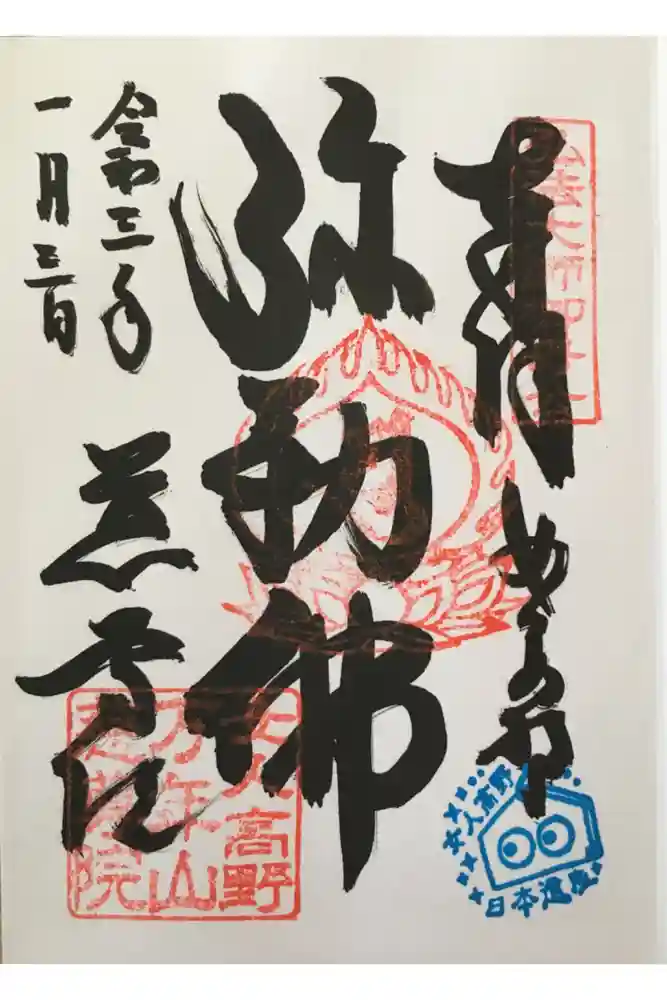 奉拝
女人高野
弥勒佛
令和三年
一月三日
慈尊院
女人高野
万年山
慈尊院
女人高野
日本遺産